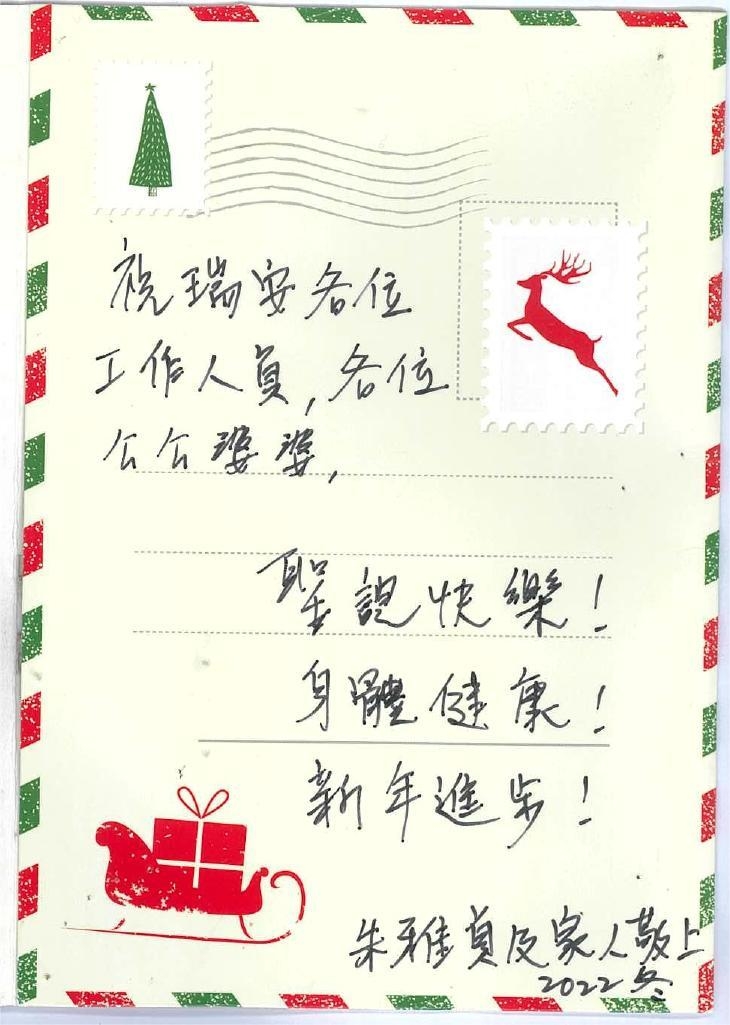 祝瑞安各位
工作人員,各位
公公婆婆,
聖誕快樂!
身體健康!
新年進步!
朱雅貞及家人敬上
2022冬